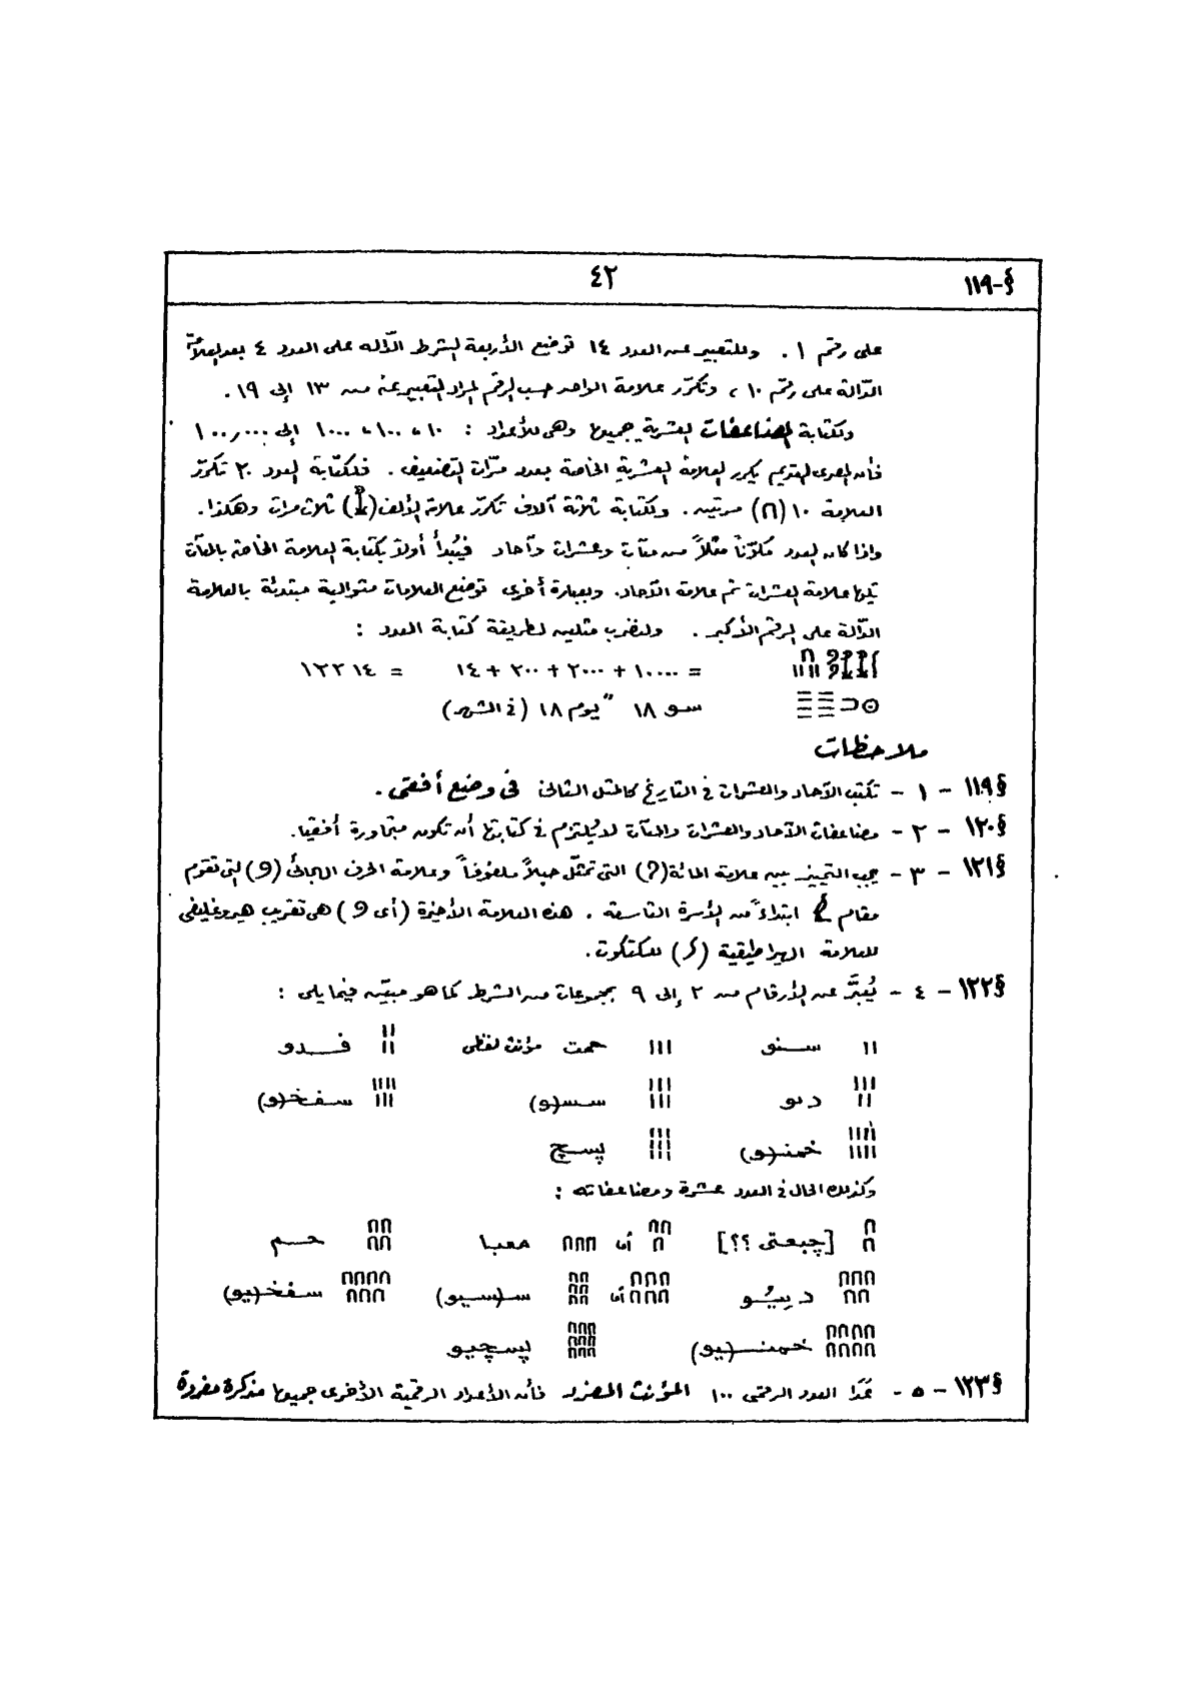 §-١١٩
٤٢
على رقم ١ . وللتعبير عن العدد ١٤ توضع الأربعة الشرط الدّالة على العدد ٤ بعد العلامة
الدّالة على رقم ١٠ ، وتكرّر علامة الواحد حسب الرقم المراد التعبير عنه من ١٣ إلى ١٩ .
ولكتابة المضاعفات العشرية جميعها وهى للأعداد : ١٠ ، ١٠٠ ، ١٠٠٠ إلى ١٠٠٫٠٠٠
فأن المصرى القديم يكرر العلامة العشرية الخاصة بعدد مرّات التضعيف . فلكتابة العدد ٢٠ تكرّر
العلامة ١٠ (𓎆) مرتين . ولكتابة ثلاثة آلاف تكرّر علامة الألف (𓆼) ثلاث مرات وهكذا .
واذا كان العدد مكوّناً مثلاً من مئات وعشرات وآحاد فيُبدأ أولاً بكتابة العلامة الخاصة بالمئات
تليها علامة العشرات ثم علامة الآحاد . وبعبارة أخرى توضع العلامات متوالية مبتدئة بالعلامة
الدّالة على الرقم الأكبر . ولنضرب مثلين لطريقة كتابة العدد :
= ١٠٠٠٠ + ٢٠٠٠ + ٢٠٠ + ١٤ = ١٢٢١٤
سو ١٨ " يوم ١٨ (فى الشهر)
ملاحظات
§١١٩ - ١ - تكتب الآحاد والعشرات فى التاريخ كالمثل الثانى فى وضع أفقى .
§١٢٠ - ٢ - مضاعفات الآحاد والعشرات والمئات لا يُلتزم فى كتابتها أن تكون متجاورة أفقيا .
§١٢١ - ٣ - يجب التمييز بين علامة المائة (𓍢) التى تمثّل حبلاً ملفوفاً وعلامة الحرف الهجائى (𓏲) التى تقوم
مقام 𓅱 ابتداءً من الأسرة التاسعة . هذه العلامة الأخيرة (أى 𓏲) هى تقريب هيروغليفى
للعلامة الهيراطيقية () للكتكوت .
§١٢٢ - ٤ - يُعبَّر عن الأرقام من ٢ إلى ٩ بمجموعات من الشرط كما هو مبيّن فيما يلى :
𓏻 سنو 𓏼 خمت مؤنث لفظى 𓏽 فدو
𓏾 ديو 𓏿 سسـ(و) 𓐀 سفخـ(و)
𓐁 خمنـ(و) 𓐂 پسچ
وكذلك الحال فى العدد عشرة ومضاعفاته :
[چبعتى ؟؟] أو معبا حم
دييُو أو سـ(سيو) سفخـ(يو)
خمنـ(يو) پسچيو
§١٢٣ - ٥ - عَدَا العدد الرقمى ١٠٠ المؤنث المفرد فأن الأعداد الرقمية الأخرى جميعها مذكرة مفردة